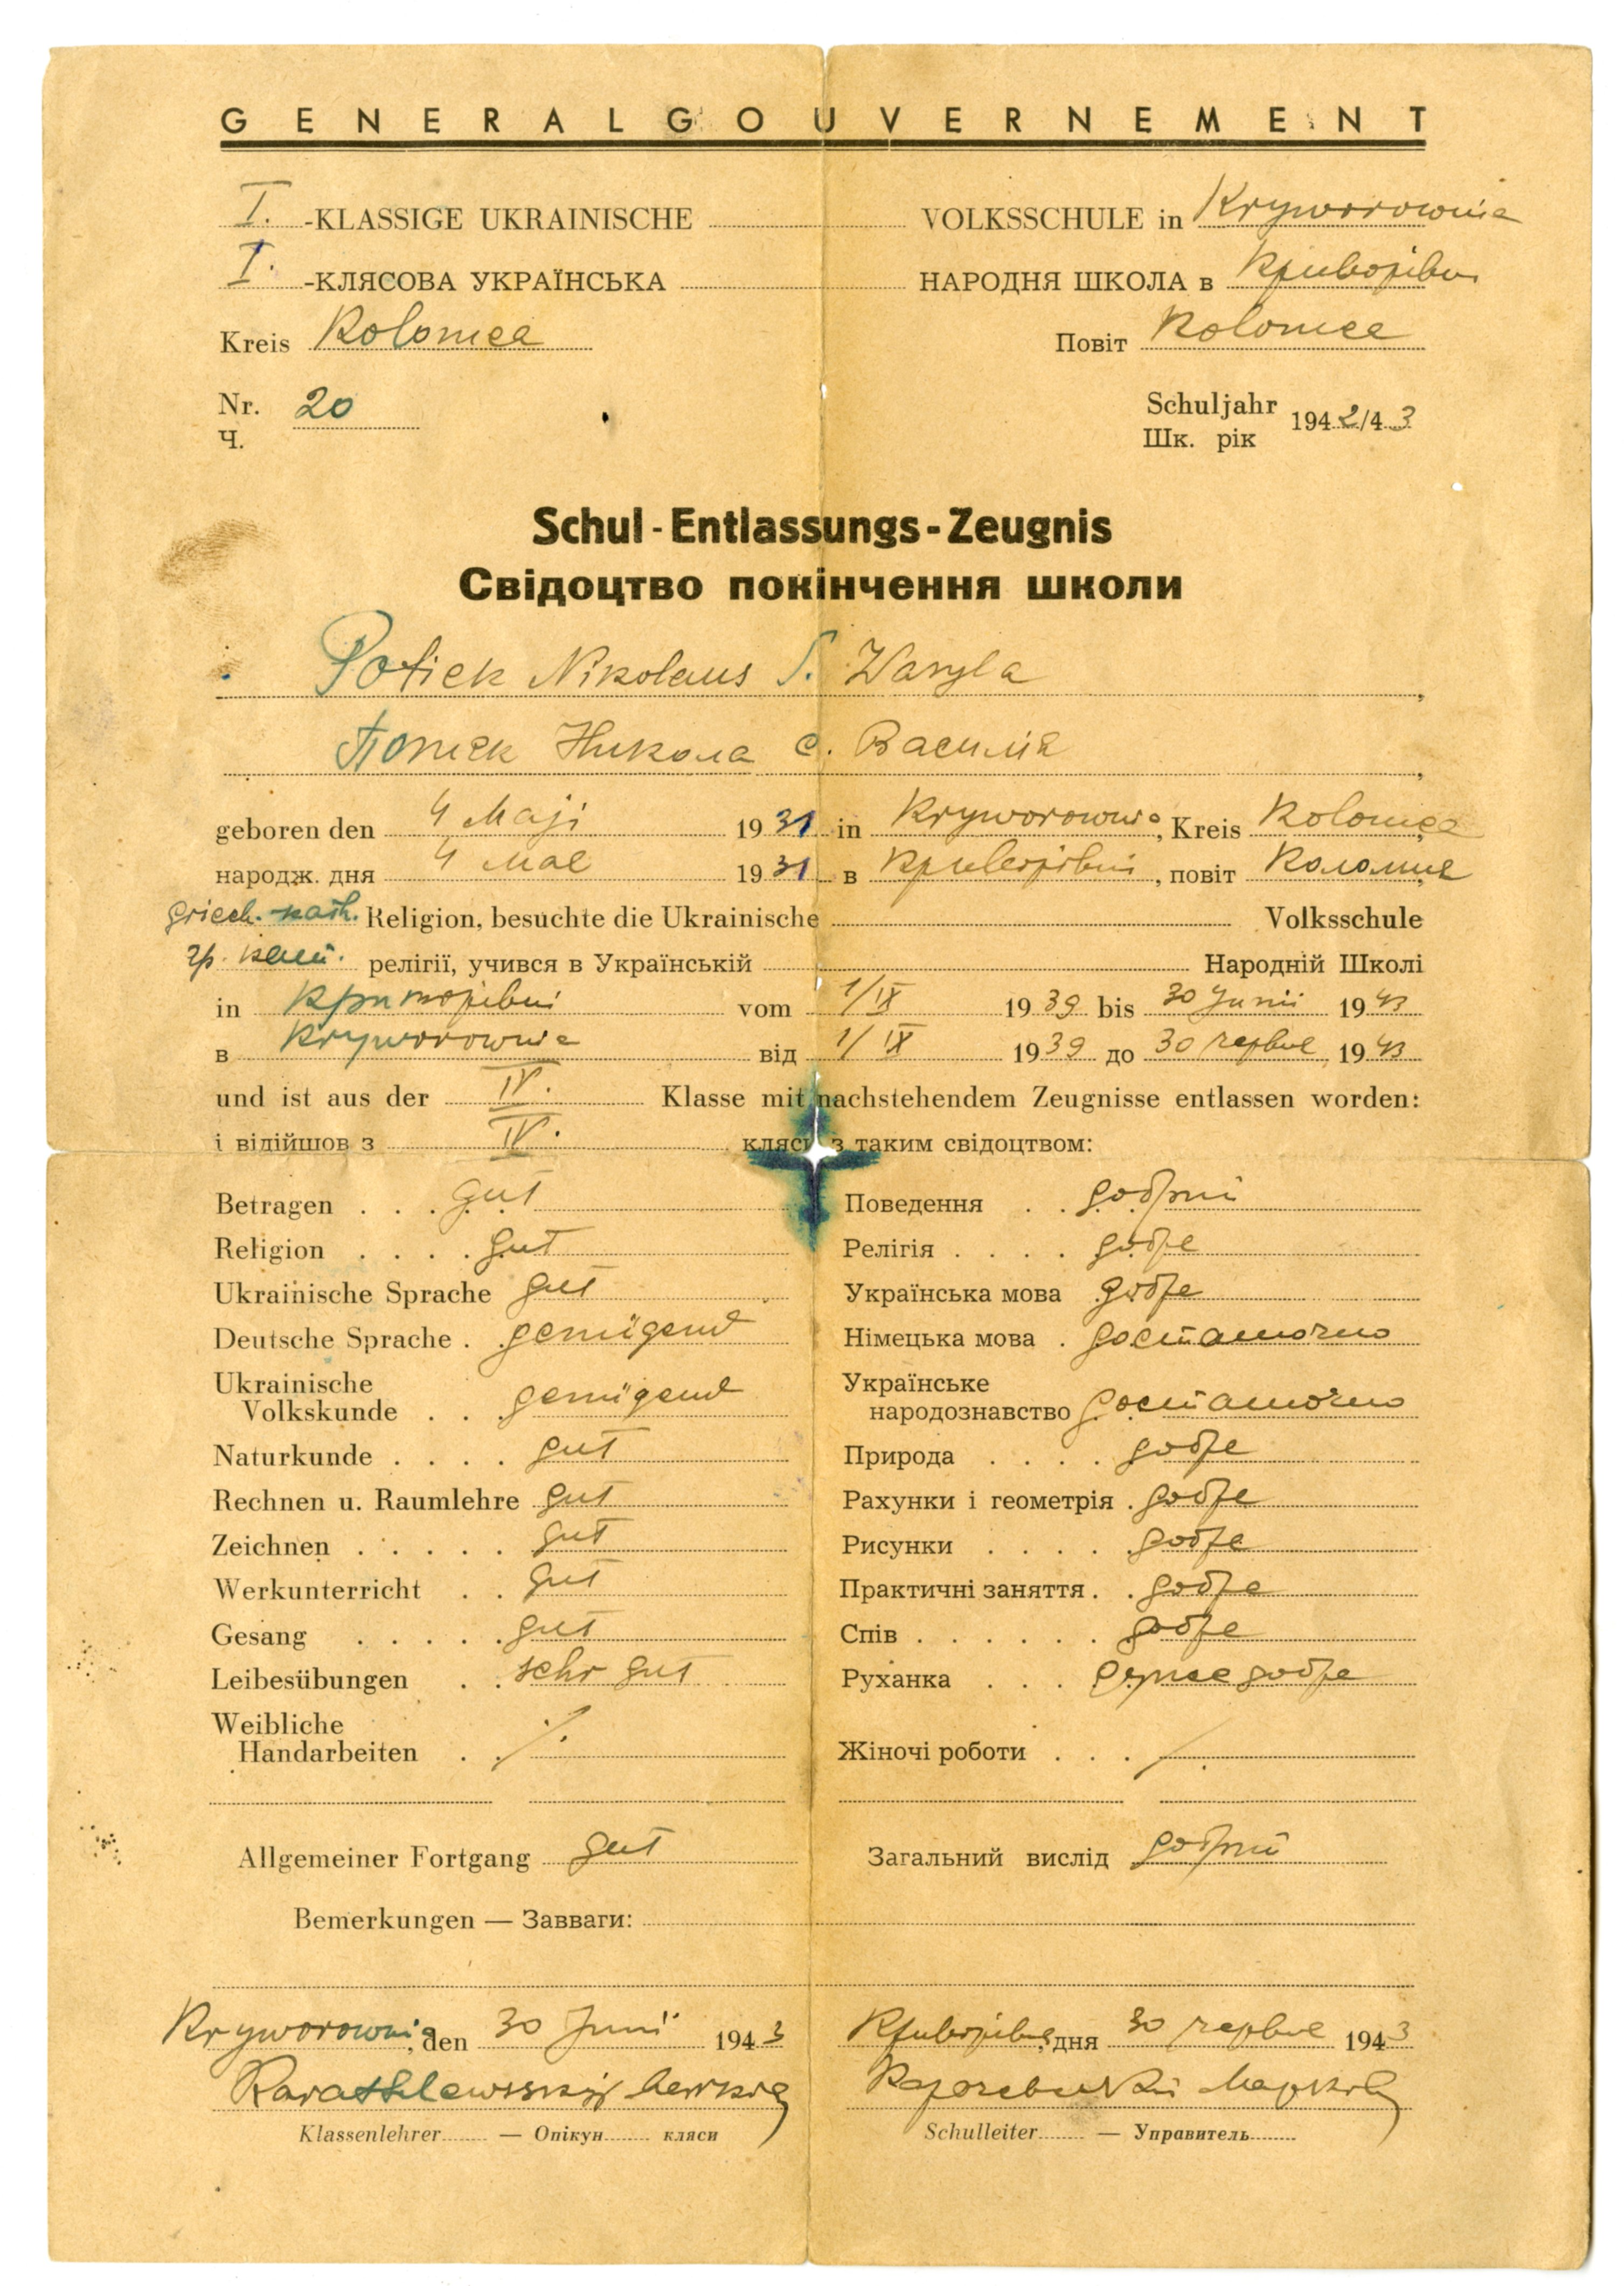 GENERALGOUVERNEMENT
I. -KLASSIGE UKRAINISCHE VOLKSSCHULE in Kryworownia
I. -КЛЯСОВА УКРАЇНСЬКА НАРОДНЯ ШКОЛА в Криворівни
Kreis Kolomea Повіт Kolomea
Nr. 20 Schuljahr 1942/43
Ч. Шк. рік
Schul-Entlassungs-Zeugnis
Свідоцтво покінчення школи
Potiek Nikolaus S. Wasyla
Потєк Никола с. Василія
geboren den 4 Maji 1931 in Kryworownia, Kreis Kolomea
народж. дня 4 мая 1931 в Криворівни, повіт Коломия
griech.-kath. Religion, besuchte die Ukrainische Volksschule
гр. кат. релігії, учився в Українській Народній Школі
in Криворівни vom 1/IX 1939 bis 30 Junii 1943
в Kryworownia від 1/IX 1939 до 30 червня, 1943
und ist aus der IV. Klasse mit nachstehendem Zeugnisse entlassen worden:
і відійшов з IV. кляси з таким свідоцтвом:
Betragen . . . gut Поведення . . добрий
Religion . . . . gut Релігія . . . . добре
Ukrainische Sprache gut Українська мова добре
Deutsche Sprache . genügend Німецька мова . достаточно
Ukrainische Українське
Volkskunde . . genügend народознавство достаточно
Naturkunde . . . . gut Природа . . . . добре
Rechnen u. Raumlehre gut Рахунки і геометрія . добре
Zeichnen . . . . . gut Рисунки . . . . добре
Werkunterricht . . gut Практичні заняття . . добре
Gesang . . . . . gut Спів . . . . . . добре
Leibesübungen . . sehr gut Руханка . . . дуже добре
Weibliche
Handarbeiten . . ⁒ Жіночі роботи . . . ⁒
Allgemeiner Fortgang gut Загальний вислід добрий
Bemerkungen — Завваги:
Kryworownia, den 30 Junii 1943 Криворівня, дня 30 червня 1943
Klassenlehrer — Опікун кляси Schulleiter — Управитель